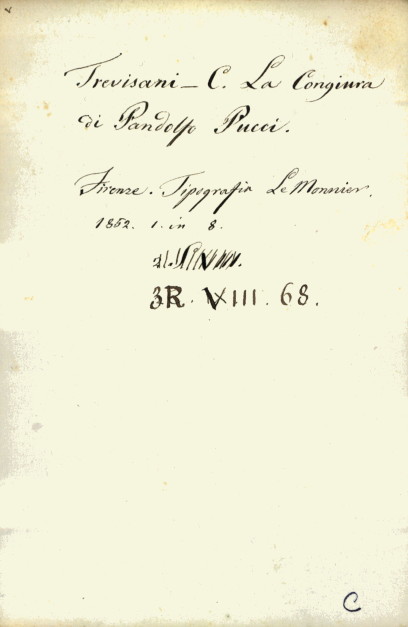 Trevisani - C. La Congiura
di Pandolfo Pucci.
Firenze. Tipografia Le Monnier.
1852. 1. in 8.
3R. VXIII. 68.
C